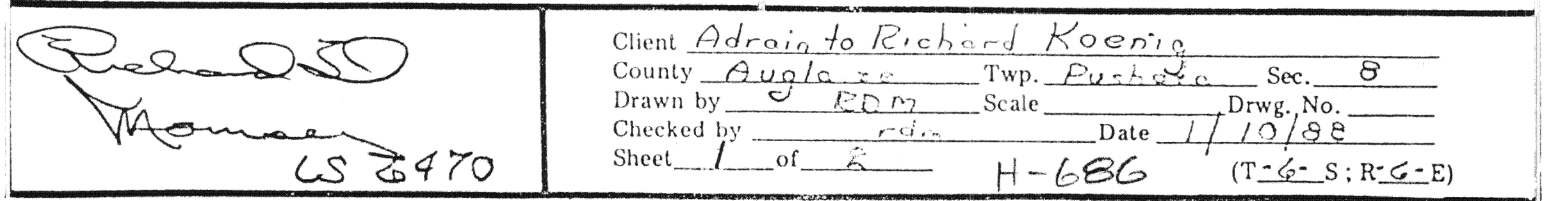 Richard D
LS 6470
Client Adrain to Richard Koenig
County Auglaize Twp. Pusheta Sec. 8
Drawn by RDM Scale Drwg. No.
Checked by rdm Date 1/10/88
Sheet 1 of 2 H-686 (T-6-S; R-6-E)